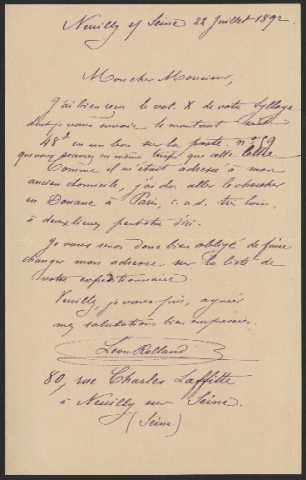 Neuilly s/ Seine 22 Juillet 1892
Mon cher Monsieur,
J'ai bien reçu le vol. X de votre Sylloge
dont je vous envoie le montant soit
48f en un bon sur la poste, n° 59
que vous recevrez en même temps que cette lettre.
Comme il m'était adressé à mon
ancien domicile, j'ai dû aller le chercher
en Douane à Paris, c.a.d. très loin,
à deux lieues peut-être d'ici.
Je vous serais donc bien obligé de faire
changer mon adresse sur la liste de
votre expéditionnaire.
Veuillez, je vous prie, agréer
mes salutations bien empressées.
Léon Rolland
80, rue Charles Laffitte
à Neuilly sur Seine.
(Seine)